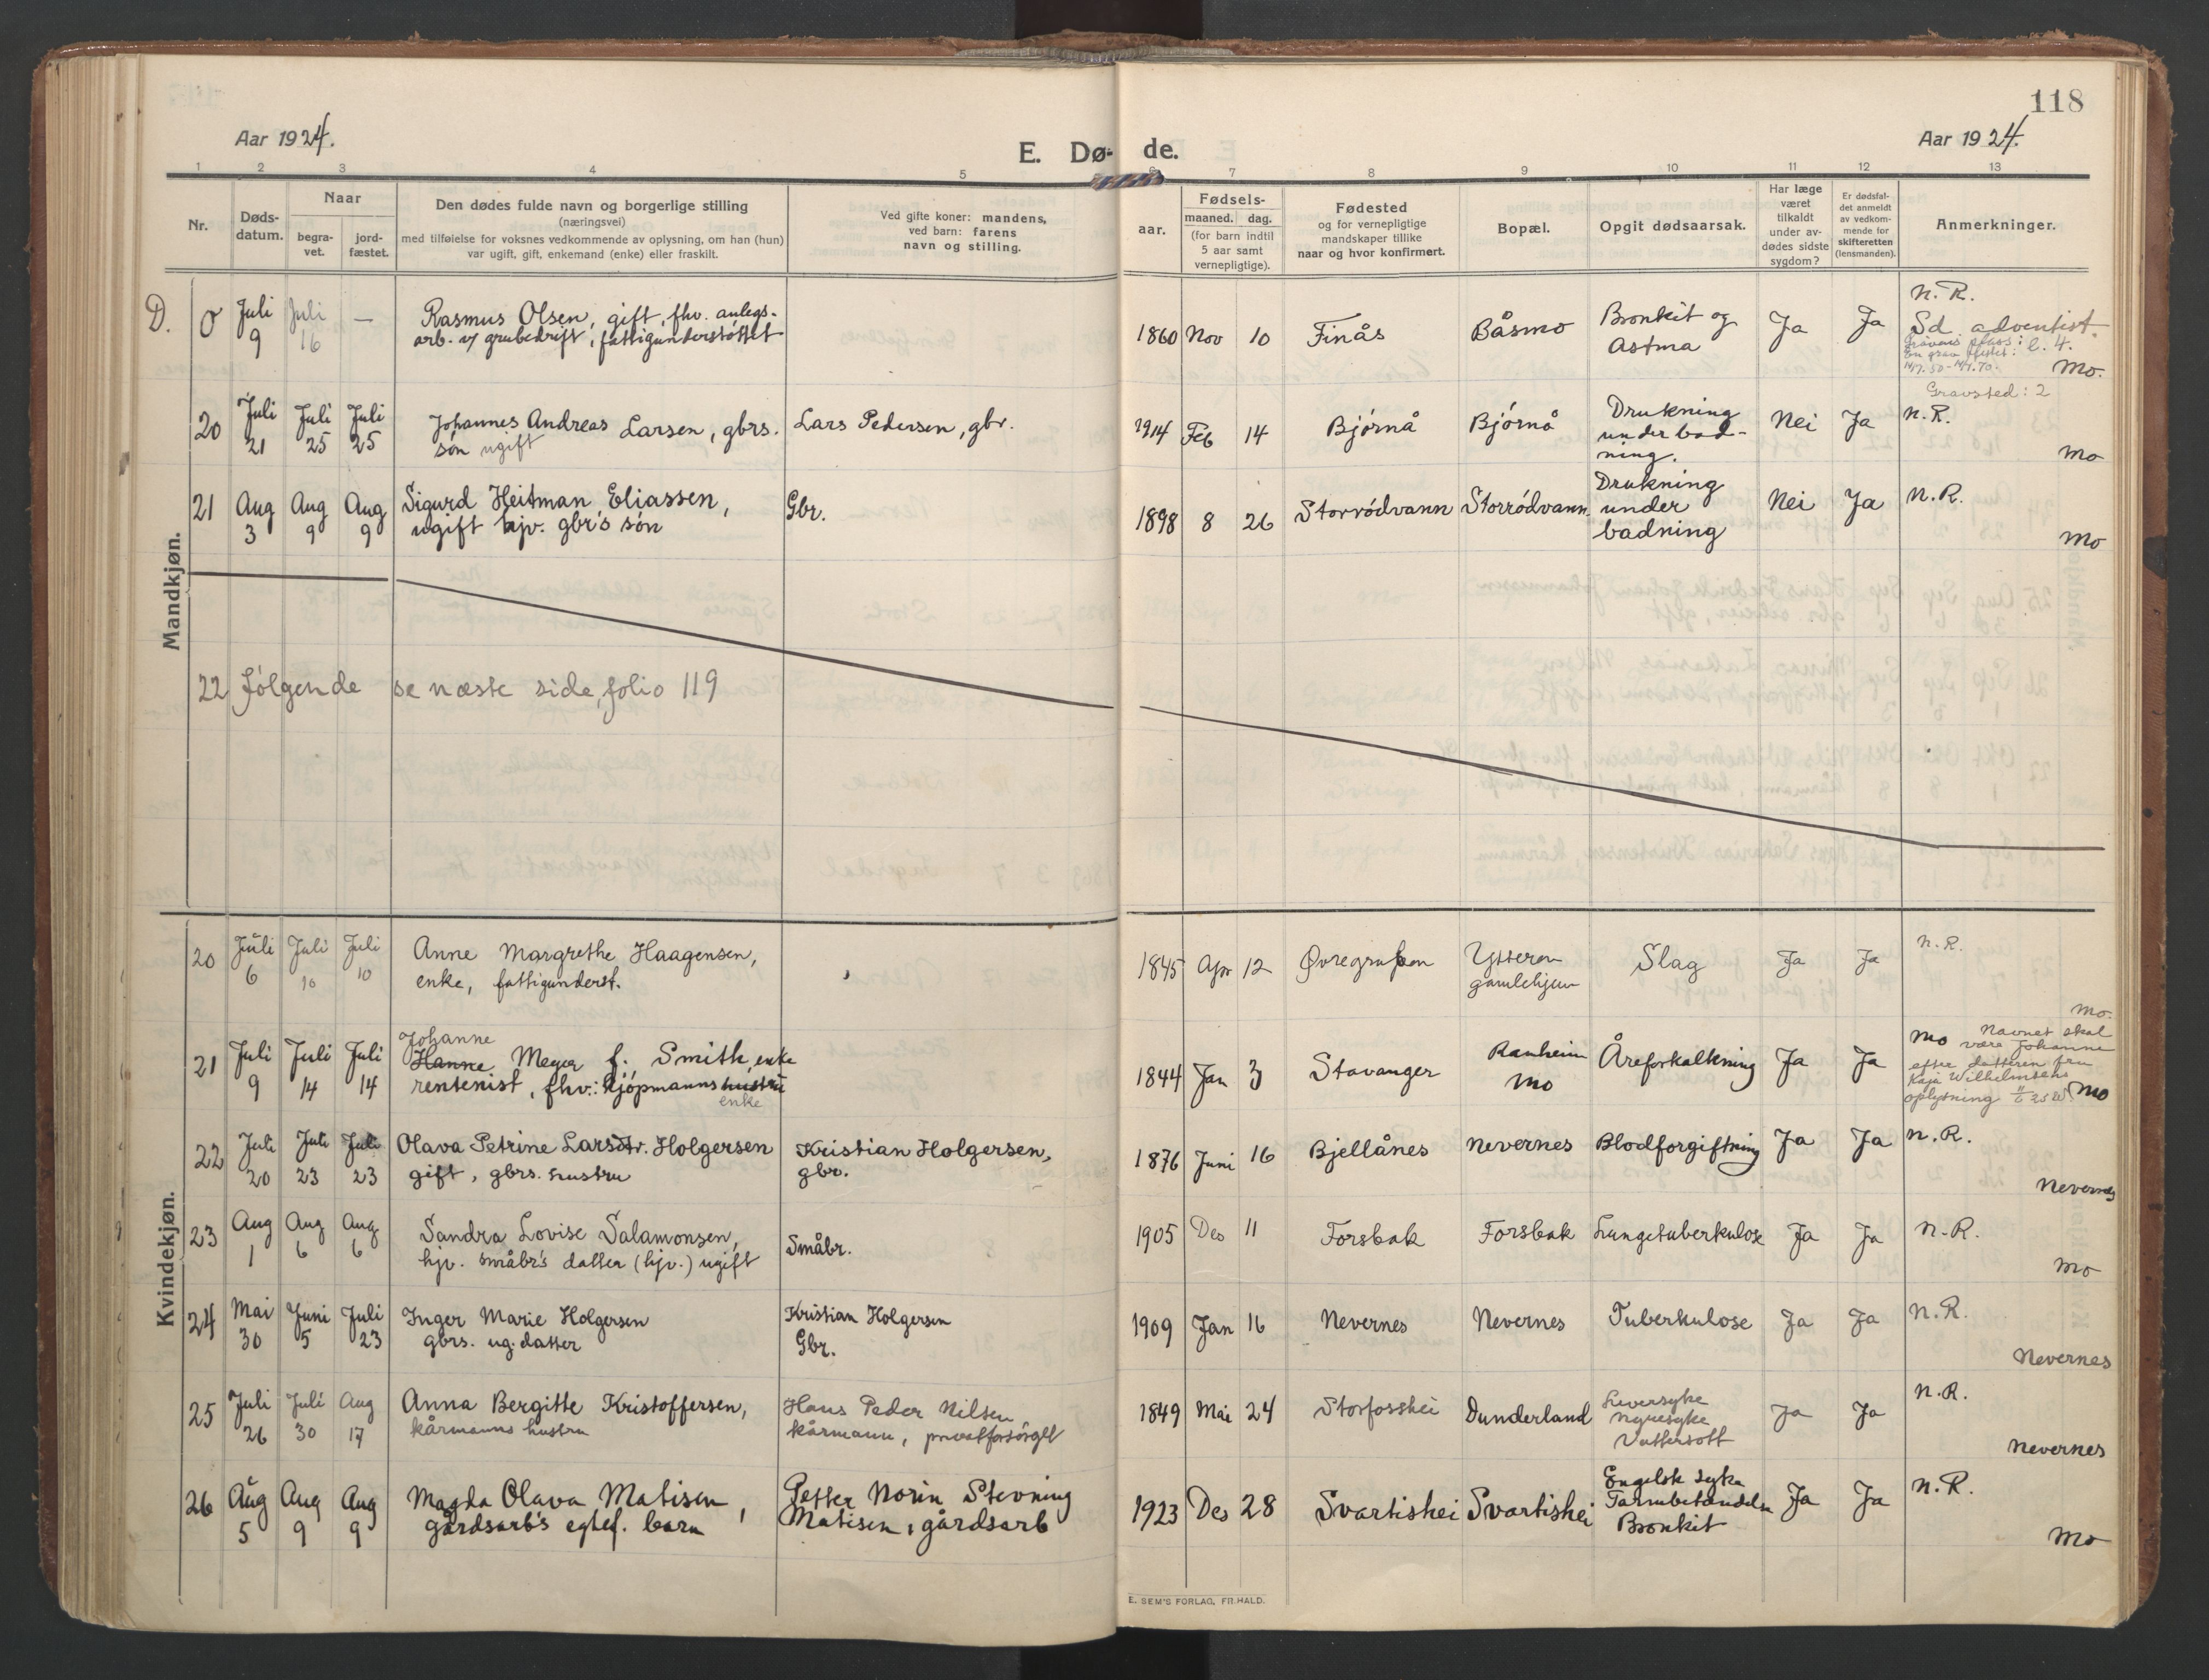 118
Aar 1924.
E. Dø- de.
Aar 1924.
1 2 3 4 5 6 7 8 9 10 11 12 13
Nr.
Døds-
datum.
Naar
begra-
vet.
jord-
fæstet.
Den dødes fulde navn og borgerlige stilling
(næringsvei)
med tilføielse for voksnes vedkommende av oplysning, om han (hun)
var ugift, gift, enkemand (enke) eller fraskilt.
Ved gifte koner: mandens,
ved barn: farens
navn og stilling.
Fødsels-
aar.
maaned. dag.
(for barn indtil
5 aar samt
vernepligtige).
Fødested
og for vernepligtige
mandskaper tillike
naar og hvor konfirmert.
Bopæl.
Opgit dødsaarsak.
Har læge
været
tilkaldt
under av-
dødes sidste
sygdom?
Er dødsfal-
det anmeldt
av vedkom-
mende for
skifteretten
(lensmanden).
Anmerkninger.
Mandkjøn.
D. 0 Juli 9 Juli 16 —
Rasmus Olsen, gift, fhv. anlegs-
arb. v/ grubedrift, fattigunderstøttet
1860 Nov 10 Finås Båsmo
Bronkit og
Astma
Ja Ja
n. R.
Sd. adventist
Gravens plass: l. 4.
En grav festet:
14/7.50-14/7.70.
Mo.
Gravsted: 2
20 Juli 21 Juli 25 Juli 25
Johannes Andreas Larsen, gbrs.
søn ugift
Lars Pedersen, gbr.
1914 Feb 14 Bjørnå Bjørnå
Drukning
under bad-
ning.
Nei Ja n. R.
Mo
21 Aug 3 Aug 9 Aug 9
Sigurd Heitman Eliassen,
ugift hjv. gbr's søn
Gbr.
1898 8 26 Storrødvann Storrødvann
Drukning
under
badning
Nei Ja n. R.
Mo
22 følgende se næste side, folio 119
Kvindekjøn.
20 Juli 6 Juli 10 Juli 10
Anne Margrethe Haagensen,
enke, fattigunderst.
1845 Apr 12 Øvregruben
Ytteren
gamlehjem
Slag Ja Ja n. R.
Mo.
21 Juli 9 Juli 14 Juli 14
Johanne
Hanne Meyer f. Smith, enke
rentenist, fhv.: kjøpmanns hustru
enke
1844 Jan 3 Stavanger
Ranheim
Mo
Åreforkalkning Ja Ja
Mo Navnet skal
være Johanne
efter datteren fru
Kaja Wilhelmsens
oplysning
Mo
22 Juli 20 Juli 23 Juli 23
Olava Petrine Larsdtr. Holgersen
gift, gbrs. hustru
Kristian Holgersen,
gbr.
1876 Juni 16 Bjellånes Nevernes Blodforgiftning Ja Ja n. R.
Nevernes
23 Aug 1 Aug 6 Aug 6
Sandra Lovise Salamonsen,
hjv. småbr's datter (hjv.) ugift
Småbr.
1905 Des 11 Forsbak Forsbak Lungetuberkulose Ja Ja n. R.
Mo
24 Mai 30 Juni 5 Juli 23
Inger Marie Holgersen
gbrs. ug. datter
Kristian Holgersen
Gbr.
1909 Jan 16 Nevernes Nevernes Tuberkulose Ja Ja n. R.
Nevernes
25 Juli 26 Juli 30 Aug 17
Anna Bergitte Kristoffersen,
kårmanns hustru
Hans Peder Nilsen
kårmann, privatforsørget
1849 Mai 24 Storfosshei Dunderland
Leversyke
Nyresyke
Vattersott
Ja Ja n. R.
Nevernes
26 Aug 5 Aug 9 Aug 9
Magda Olava Matisen,
gårdsarb's egtef. barn
Petter Norin Stevning
Matisen, gårdsarb
1923 Des 28 Svartishei Svartishei
Engelsk syke
Tarmbetændelse
Bronkit
Ja Ja n. R.
Mo
E. SEM'S FORLAG, FR.HALD.